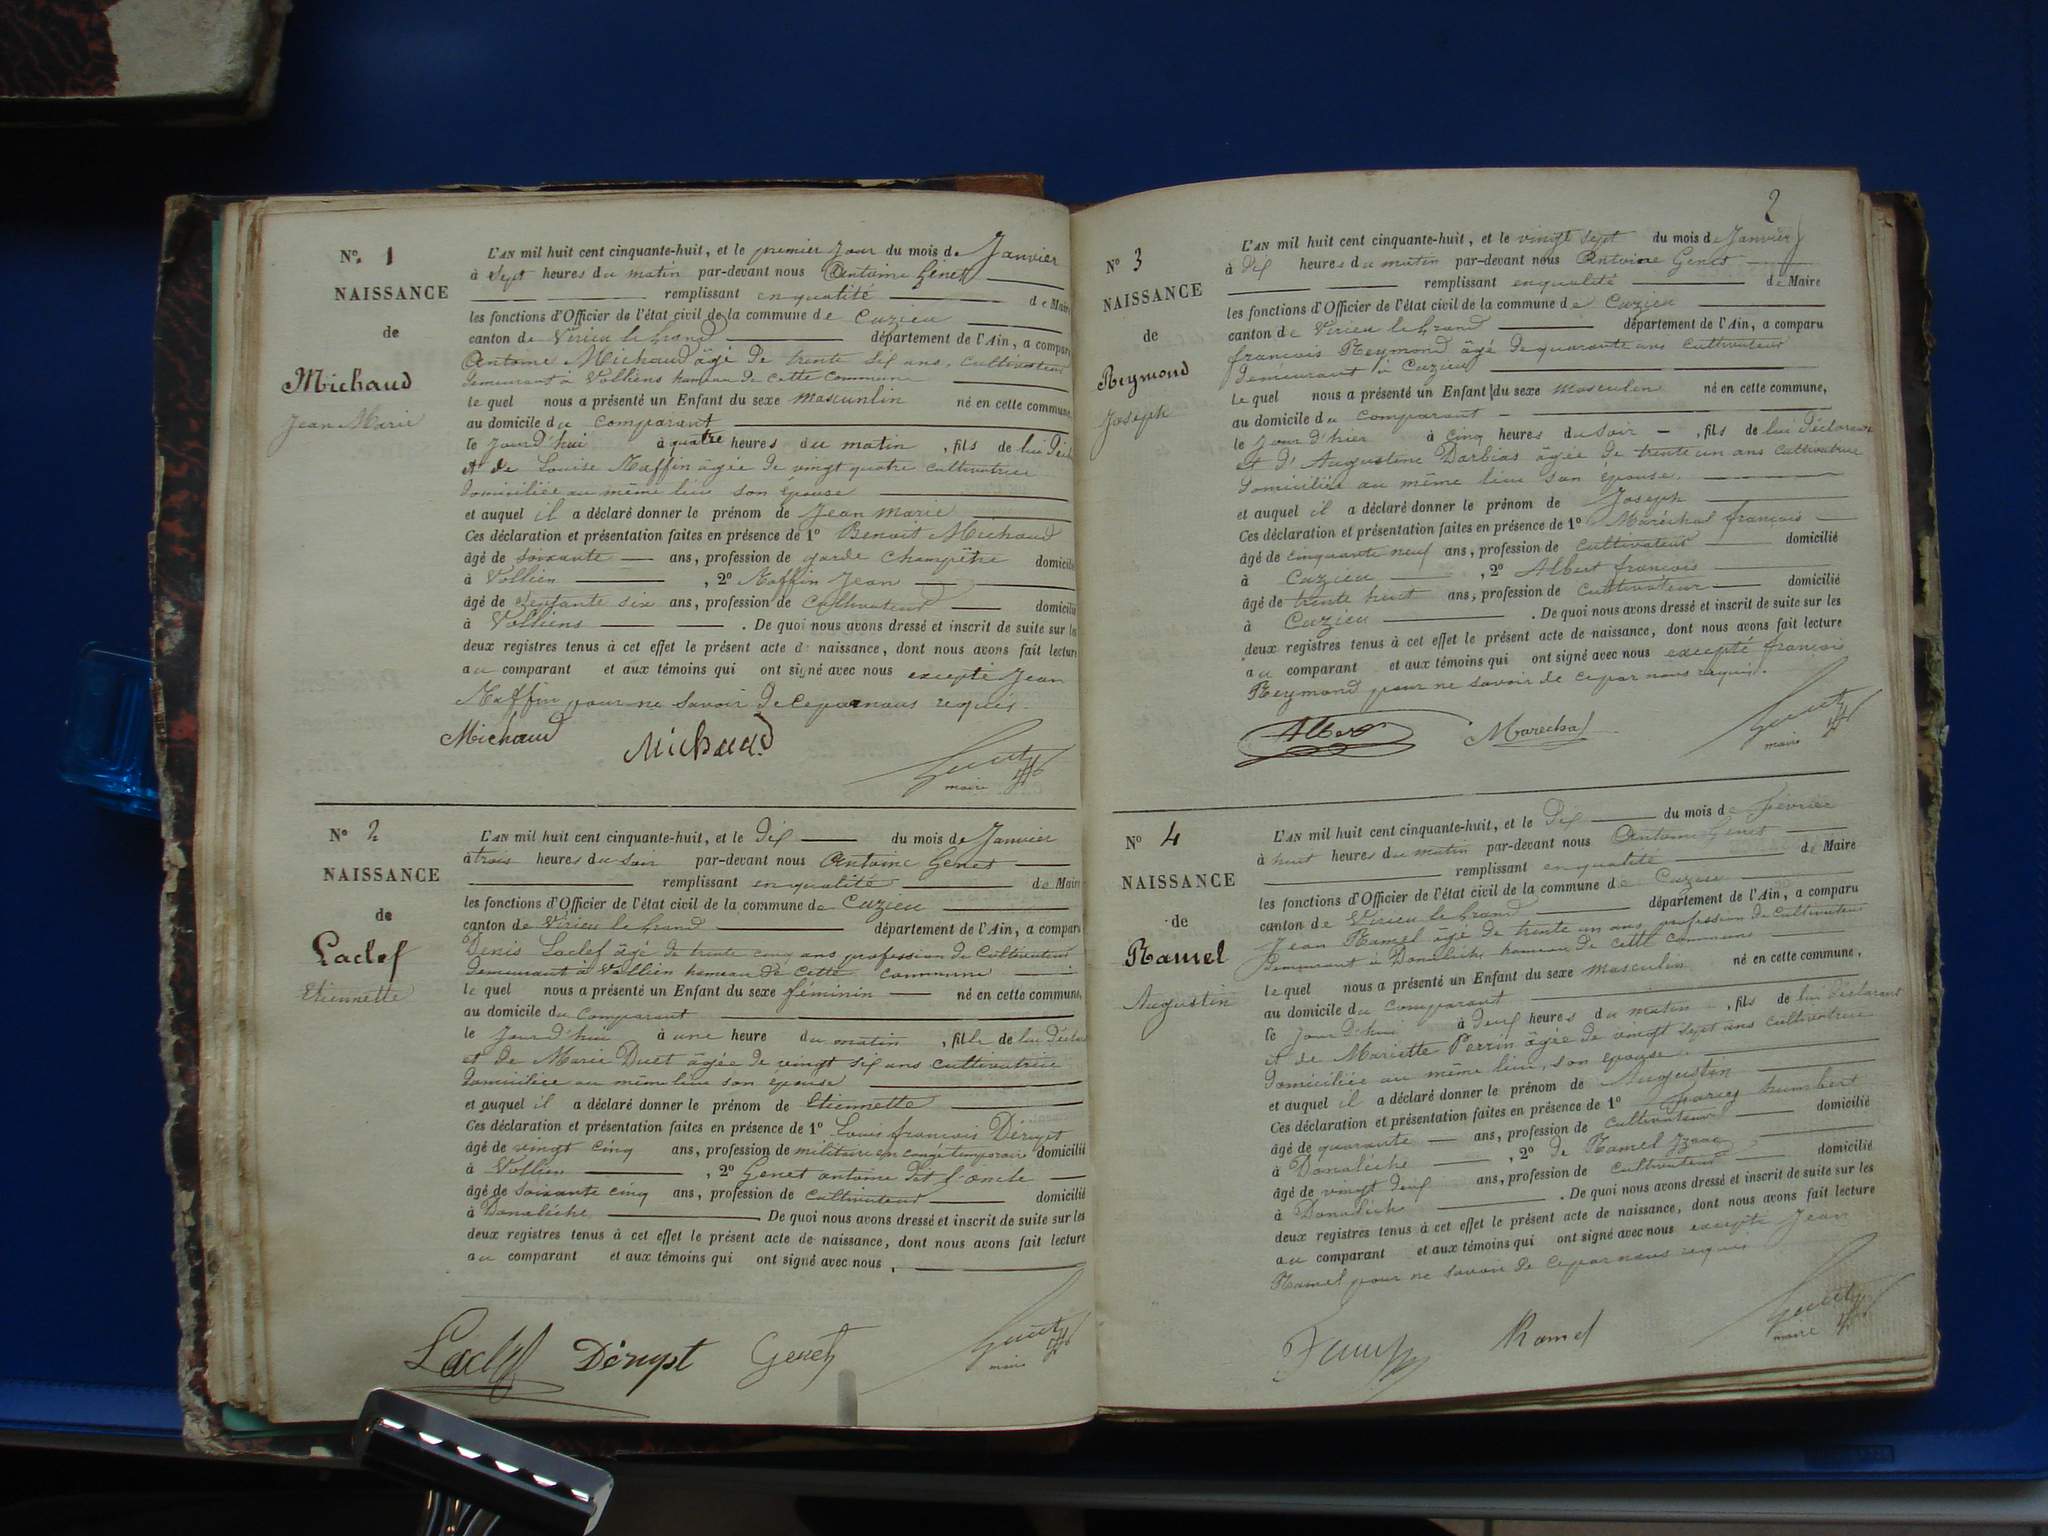 N° 1
NAISSANCE
de
Michaud
Jean Marie
L'AN mil huit cent cinquante-huit, et le premier jour du mois de Janvier
à Sept heures du matin par-devant nous Antoine Genet
remplissant en qualité de Maire
les fonctions d'Officier de l'état civil de la commune de Cuzieu
canton de Virieu le Grand département de l'Ain, a comparu
Antoine Michaud âgé de trente six ans, cultivateur
demeurant à Volliens hameau de cette commune
le quel nous a présenté un Enfant du sexe masculin né en cette commune,
au domicile du comparant
le jourd'hui à quatre heures du matin, fils de lui Décla
et de Louise Maffin âgée de vingt quatre cultivatrice
domiciliée au même lieu son épouse
et auquel il a déclaré donner le prénom de Jean Marie
Ces déclaration et présentation faites en présence de 1° Benoit Michaud
âgé de soixante ans, profession de garde champêtre domicilié
à Vollien, 2° Maffin Jean
âgé de six ans, profession de cultivateur domicilié
à Volliens. De quoi nous avons dressé et inscrit de suite sur les
deux registres tenus à cet effet le présent acte de naissance, dont nous avons fait lecture
au comparant et aux témoins qui ont signé avec nous excepté Jean
Maffin pour ne savoir de ce par nous requis.
Michaud Michaud Genet
maire
N° 2
NAISSANCE
de
Laclef
Etiennette
L'AN mil huit cent cinquante-huit, et le Dix du mois de Janvier
à trois heures du soir par-devant nous Antoine Genet
remplissant en qualité de Maire
les fonctions d'Officier de l'état civil de la commune de Cuzieu
canton de Virieu le Grand département de l'Ain, a comparu
Denis Laclef âgé de trente cinq ans profession de Cultivateur
demeurant à Vollien hameau de cette commune
le quel nous a présenté un Enfant du sexe féminin né en cette commune,
au domicile du comparant
le jourd'hui à une heure du matin, fille de lui Décla
et de Marie Duet âgée de vingt six ans cultivatrice
domiciliée au même lieu son épouse
et auquel il a déclaré donner le prénom de Etiennette
Ces déclaration et présentation faites en présence de 1° Louis françois Déruyt
âgé de vingt cinq ans, profession de militaire en congé temporaire domicilié
à Vollien, 2° Genet antoine dit l'oncle
âgé de soixante cinq ans, profession de cultivateur domicilié
à Donalèche De quoi nous avons dressé et inscrit de suite sur les
deux registres tenus à cet effet le présent acte de naissance, dont nous avons fait lecture
au comparant et aux témoins qui ont signé avec nous.
Laclef Genet Genet
maire
2
N° 3
NAISSANCE
de
Reymond
Joseph
L'AN mil huit cent cinquante-huit, et le vingt sept du mois de Janvier
à dix heures du matin par-devant nous Antoine Genet
remplissant en qualité de Maire
les fonctions d'Officier de l'état civil de la commune de Cuzieu
canton de Virieu le Grand département de l'Ain, a comparu
françois Reymond âgé de quarante ans cultivateur
demeurant à Cuzieu
le quel nous a présenté un Enfant du sexe masculin né en cette commune,
au domicile du comparant
le jour d'hier à cinq heures du soir, fils de lui déclarant
et d'Augustine Darbias âgée de trente un ans cultivatrice
domiciliée au même lieu son épouse,
et auquel il a déclaré donner le prénom de Joseph
Ces déclaration et présentation faites en présence de 1° Maréchal françois
âgé de cinquante neuf ans, profession de cultivateur domicilié
à Cuzieu, 2° Albert françois
âgé de trente huit ans, profession de cultivateur domicilié
à Cuzieu. De quoi nous avons dressé et inscrit de suite sur les
deux registres tenus à cet effet le présent acte de naissance, dont nous avons fait lecture
au comparant et aux témoins qui ont signé avec nous excepté françois
Reymond pour ne savoir de ce par nous requis.
Albert Marechal Genet
maire
N° 4
NAISSANCE
de
Ramel
Augustin
L'AN mil huit cent cinquante-huit, et le Dix du mois de Février
à huit heures du matin par-devant nous Antoine Genet
remplissant en qualité de Maire
les fonctions d'Officier de l'état civil de la commune de Cuzieu
canton de Virieu le Grand département de l'Ain, a comparu
Jean Ramel âgé de trente un ans profession de cultivateur
demeurant à Donalèche hameau de cette commune
le quel nous a présenté un Enfant du sexe masculin né en cette commune,
au domicile du comparant
le jour d'hui à deux heures du matin, fils de lui déclarant
et de Mariette Perrin âgée de vingt sept ans cultivatrice
domiciliée au même lieu, son épouse
et auquel il a déclaré donner le prénom de Augustin
Ces déclaration et présentation faites en présence de 1° humbert
âgé de quarante ans, profession de cultivateur domicilié
à Donalèche, 2° de Ramel Izaac
âgé de vingt deux ans, profession de cultivateur domicilié
à Donalèche. De quoi nous avons dressé et inscrit de suite sur les
deux registres tenus à cet effet le présent acte de naissance, dont nous avons fait lecture
au comparant et aux témoins qui ont signé avec nous excepté Jean
Ramel pour ne savoir de ce par nous requis
Ramel Genet
maire